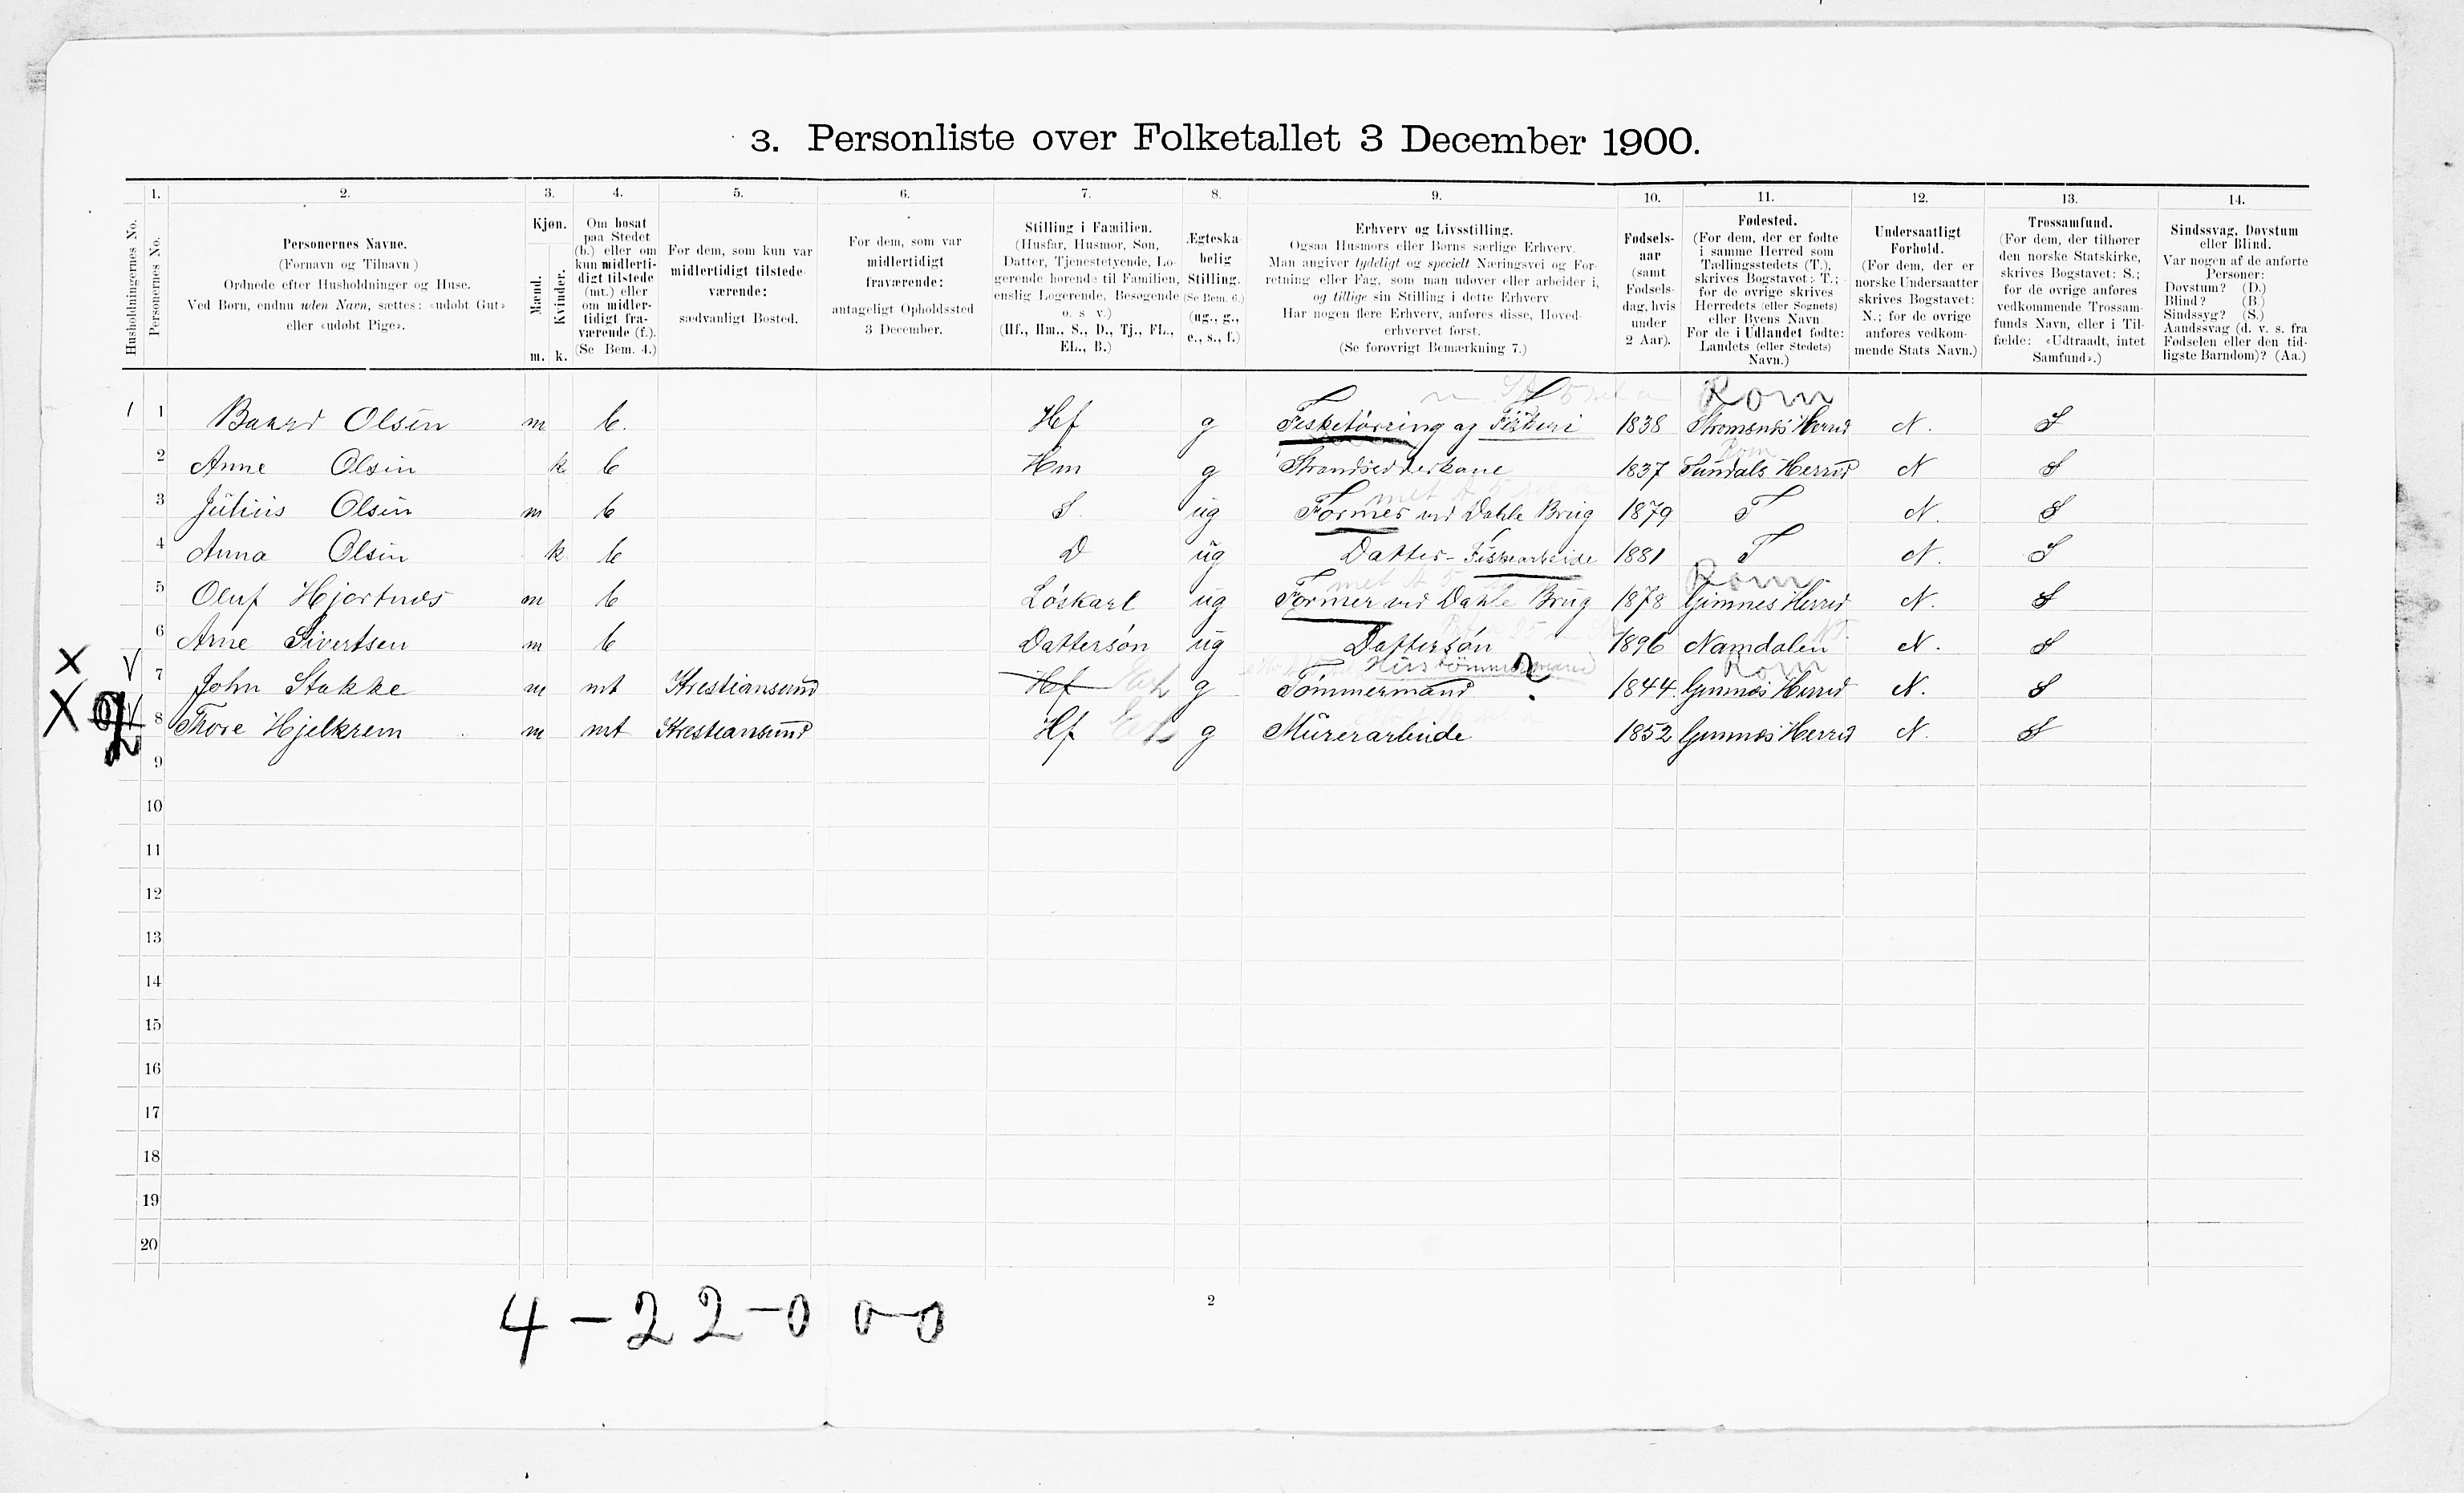 3. Personliste over Folketallet 3 December 1900.
1. 2. 3. 4. 5. 6. 7. 8. 9. 10. 11. 12. 13. 14.
Husholdningernes No.
Personernes No.
Personernes Navne.
(Fornavn og Tilnavn)
Ordnede efter Husholdninger og Huse.
Ved Børn, endnu uden Navn, sættes: «udøbt Gut»
eller «udøbt Pige».
Kjøn.
Mænd.
Kvinder.
m. k.
Om bosat
paa Stedet
(b.) eller om
kun midlerti-
digt tilstede
(mt.) eller
om midler-
tidigt fra-
værende (f.).
(Se Bem. 4.)
For dem, som kun var
midlertidigt tilstede-
værende:
sædvanligt Bosted.
For dem, som var
midlertidigt
fraværende:
antageligt Opholdssted
3 December.
Stilling i Familien.
(Husfar, Husmor, Søn,
Datter, Tjenestetyende, Lo-
gerende hørende til Familien,
enslig Logerende, Besøgende
o. s. v.)
(Hf., Hm., S., D., Tj., FL.,
EL., B.)
Ægteska-
belig
Stilling.
(Se Bem. 6.)
(ug., g.,
e., s., f.)
Erhverv og Livsstilling.
Ogsaa Husmors eller Børns særlige Erhverv.
Man angiver tydeligt og specielt Næringsvei og For-
retning eller Fag, som man udøver eller arbeider i,
og tillige sin Stilling i dette Erhverv
Har nogen flere Erhverv, anføres disse, Hoved-
erhvervet først.
(Se forøvrigt Bemærkning 7.)
Fødsels-
aar
(samt
Fødsels-
dag, hvis
under
2 Aar).
Fødested.
(For dem, der er fødte
i samme Herred som
Tællingsstedets (T.),
skrives Bogstavet: T.;
for de øvrige skrives
Herredets (eller Sognets)
eller Byens Navn
For de i Udlandet fødte:
Landets (eller Stedets)
Navn.)
Undersaatligt
Forhold.
(For dem, der er
norske Undersaatter
skrives Bogstavet:
N.; for de øvrige
anføres vedkom-
mende Stats Navn.)
Trossamfund.
(For dem, der tilhører
den norske Statskirke,
skrives Bogstavet: S.;
for de øvrige anføres
vedkommende Trossam-
funds Navn, eller i Til-
fælde: «Udtraadt, intet
Samfund».)
Sindssvag, Døvstum
eller Blind.
Var nogen af de anførte
Personer:
Døvstum? (D.)
Blind? (B.)
Sindssyg? (S.)
Aandssvag (d. v. s. fra
Fødselen eller den tid-
ligste Barndom)? (Aa.)
Rom
1 1 Baard Olsen m b. Hf g Fisketørring og Fiskeri 1838 Strømsnes Herred N. S
Rom
2 Anne Olsen k b Hm g Strandsidderkone 1837 Sundals Herred N S
3 Julius Olsen m b S. ug Former ved Dahle Brug 1879 T N. S
4 Anna Olsen k b D ug Datter - Fiskearbeide 1881 T N. S
Rom
5 Oluf Hjortnes m b Løskarl ug Former ved Dahle Brug 1878 Gimnes Herred N. S
6 Arne Sivertsen m b Dattersøn ug Dattersøn 1896 Namdalen N. S
Rom
Hustømmermand
x V 7 John Stokke m mt Kristiansund Hf g Tømmermand ? 1844. Gimnes Herred N. S
X V 8 Thore Hjelkrem m mt Kristiansund Hf g Murerarbeide 1852 Gimnes Herred N. S
2
9
10
11
12
13
14
15
16
17
18
19
20
2
4 - 2 2 - 0 0 - 0